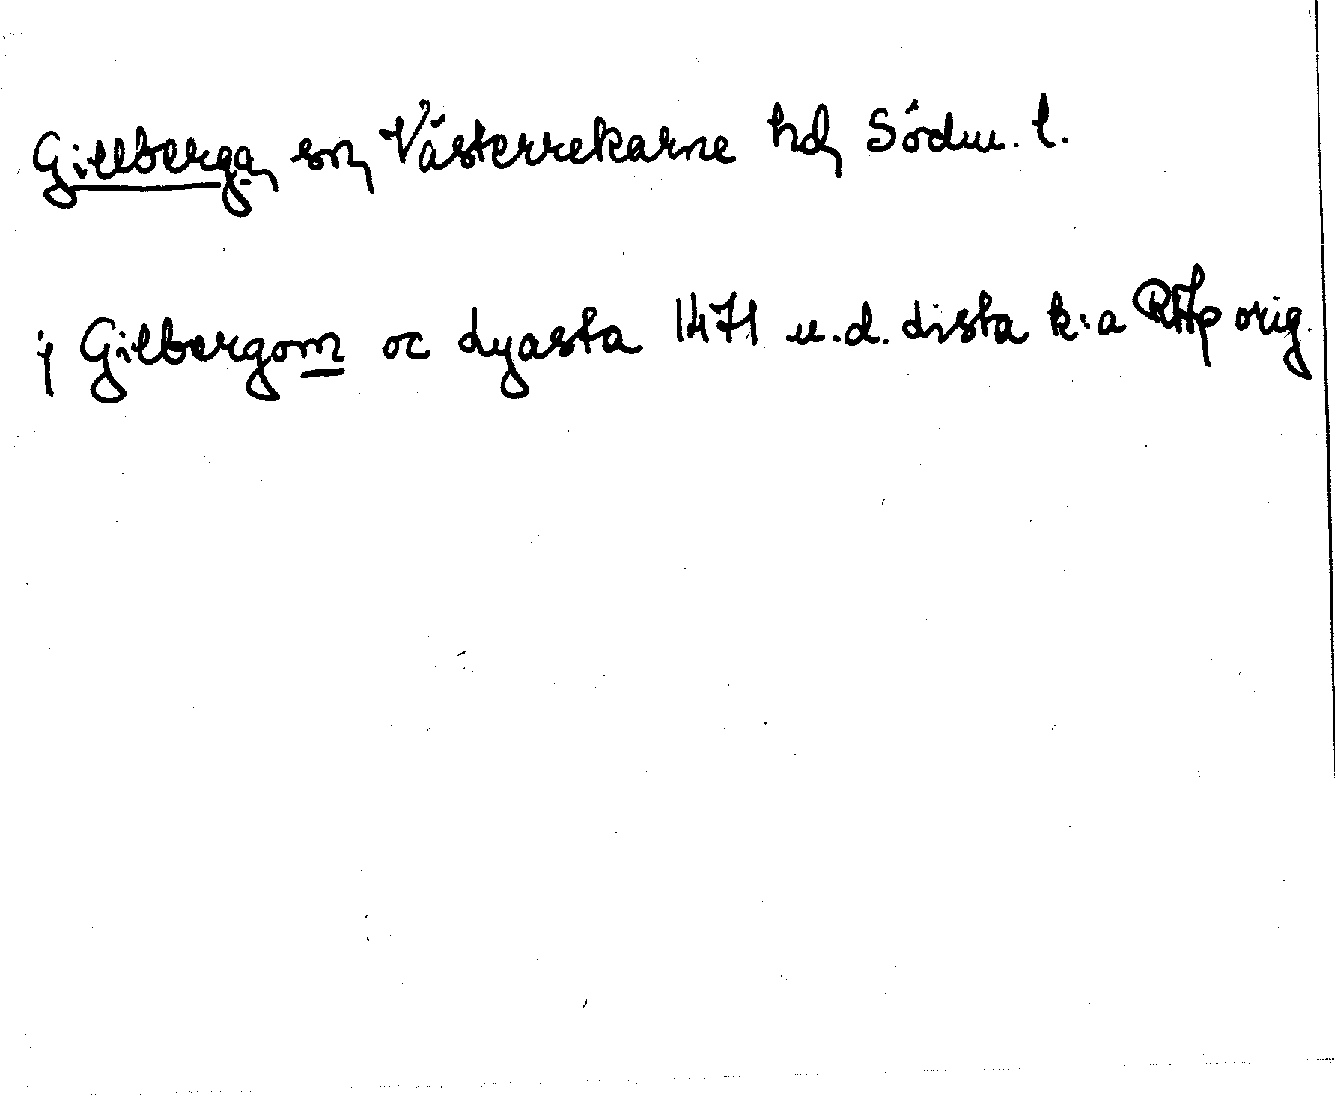 Gillberga sn Västerrekarne hd Södm. l.
j Gilbergom oc Lyasta 1471 u.d. Lista k:a RAp orig.